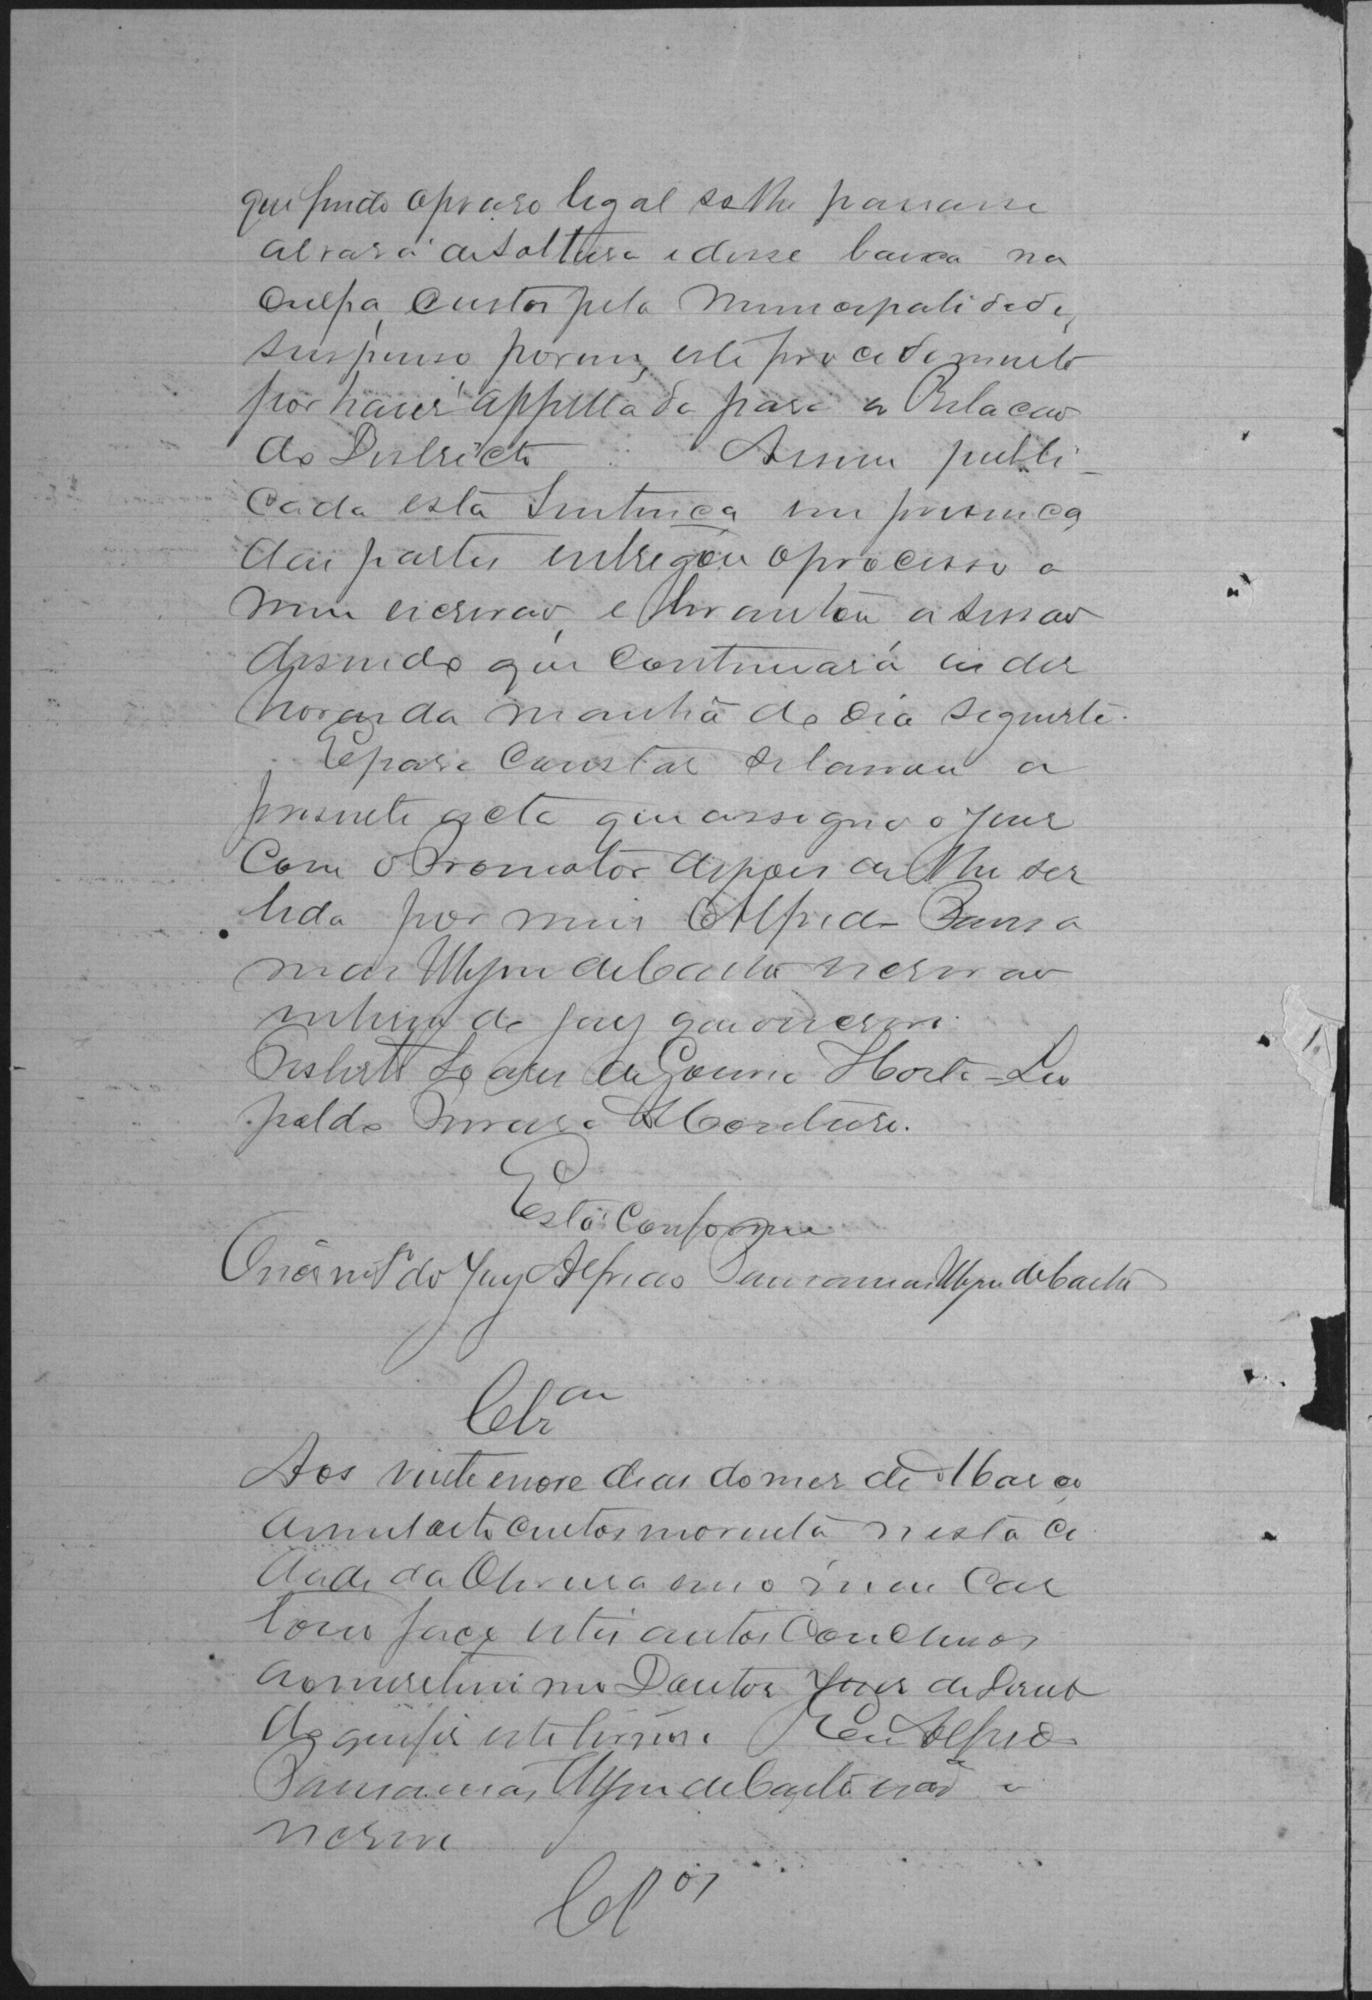 que findo o praso legal se lhe passasse
alvará de soltura e desse baixa na
culpa, custas pela Municipalidade,
suspenso porem, este procedimento
por haver appellado para a Relacao
do Districto Assim publi-
cada esta sentença em presença
das partes entregou o processo a
mim escrivao, e levantou a sessao
disendo que continuará as des
horas da manhã do dia seguinte.
E para constar se lavrou a
presente acta que assigna o Juis
com o Promotor depois de lhe ser
lida por mim Alfredo Pausa
nias de Casta escrivao
interino do jury que o escrevi.
Soares de Gouvia Horta = Leo
poldo
Está Conforme
O escrivão do Jury Alfredo Pausanias de Casta
Clzam
Aos vinte e nove dias do mes de Março
de mil oito centos noventa nesta Ci
dade da Oliveira em o meu Car
torio faço estes autos Conclusos
ao meretissimo Doutor Juis de Direito
do que fis este termo. Eu Alfredo
Pausanias de Casta esão o
escrevi
Clos